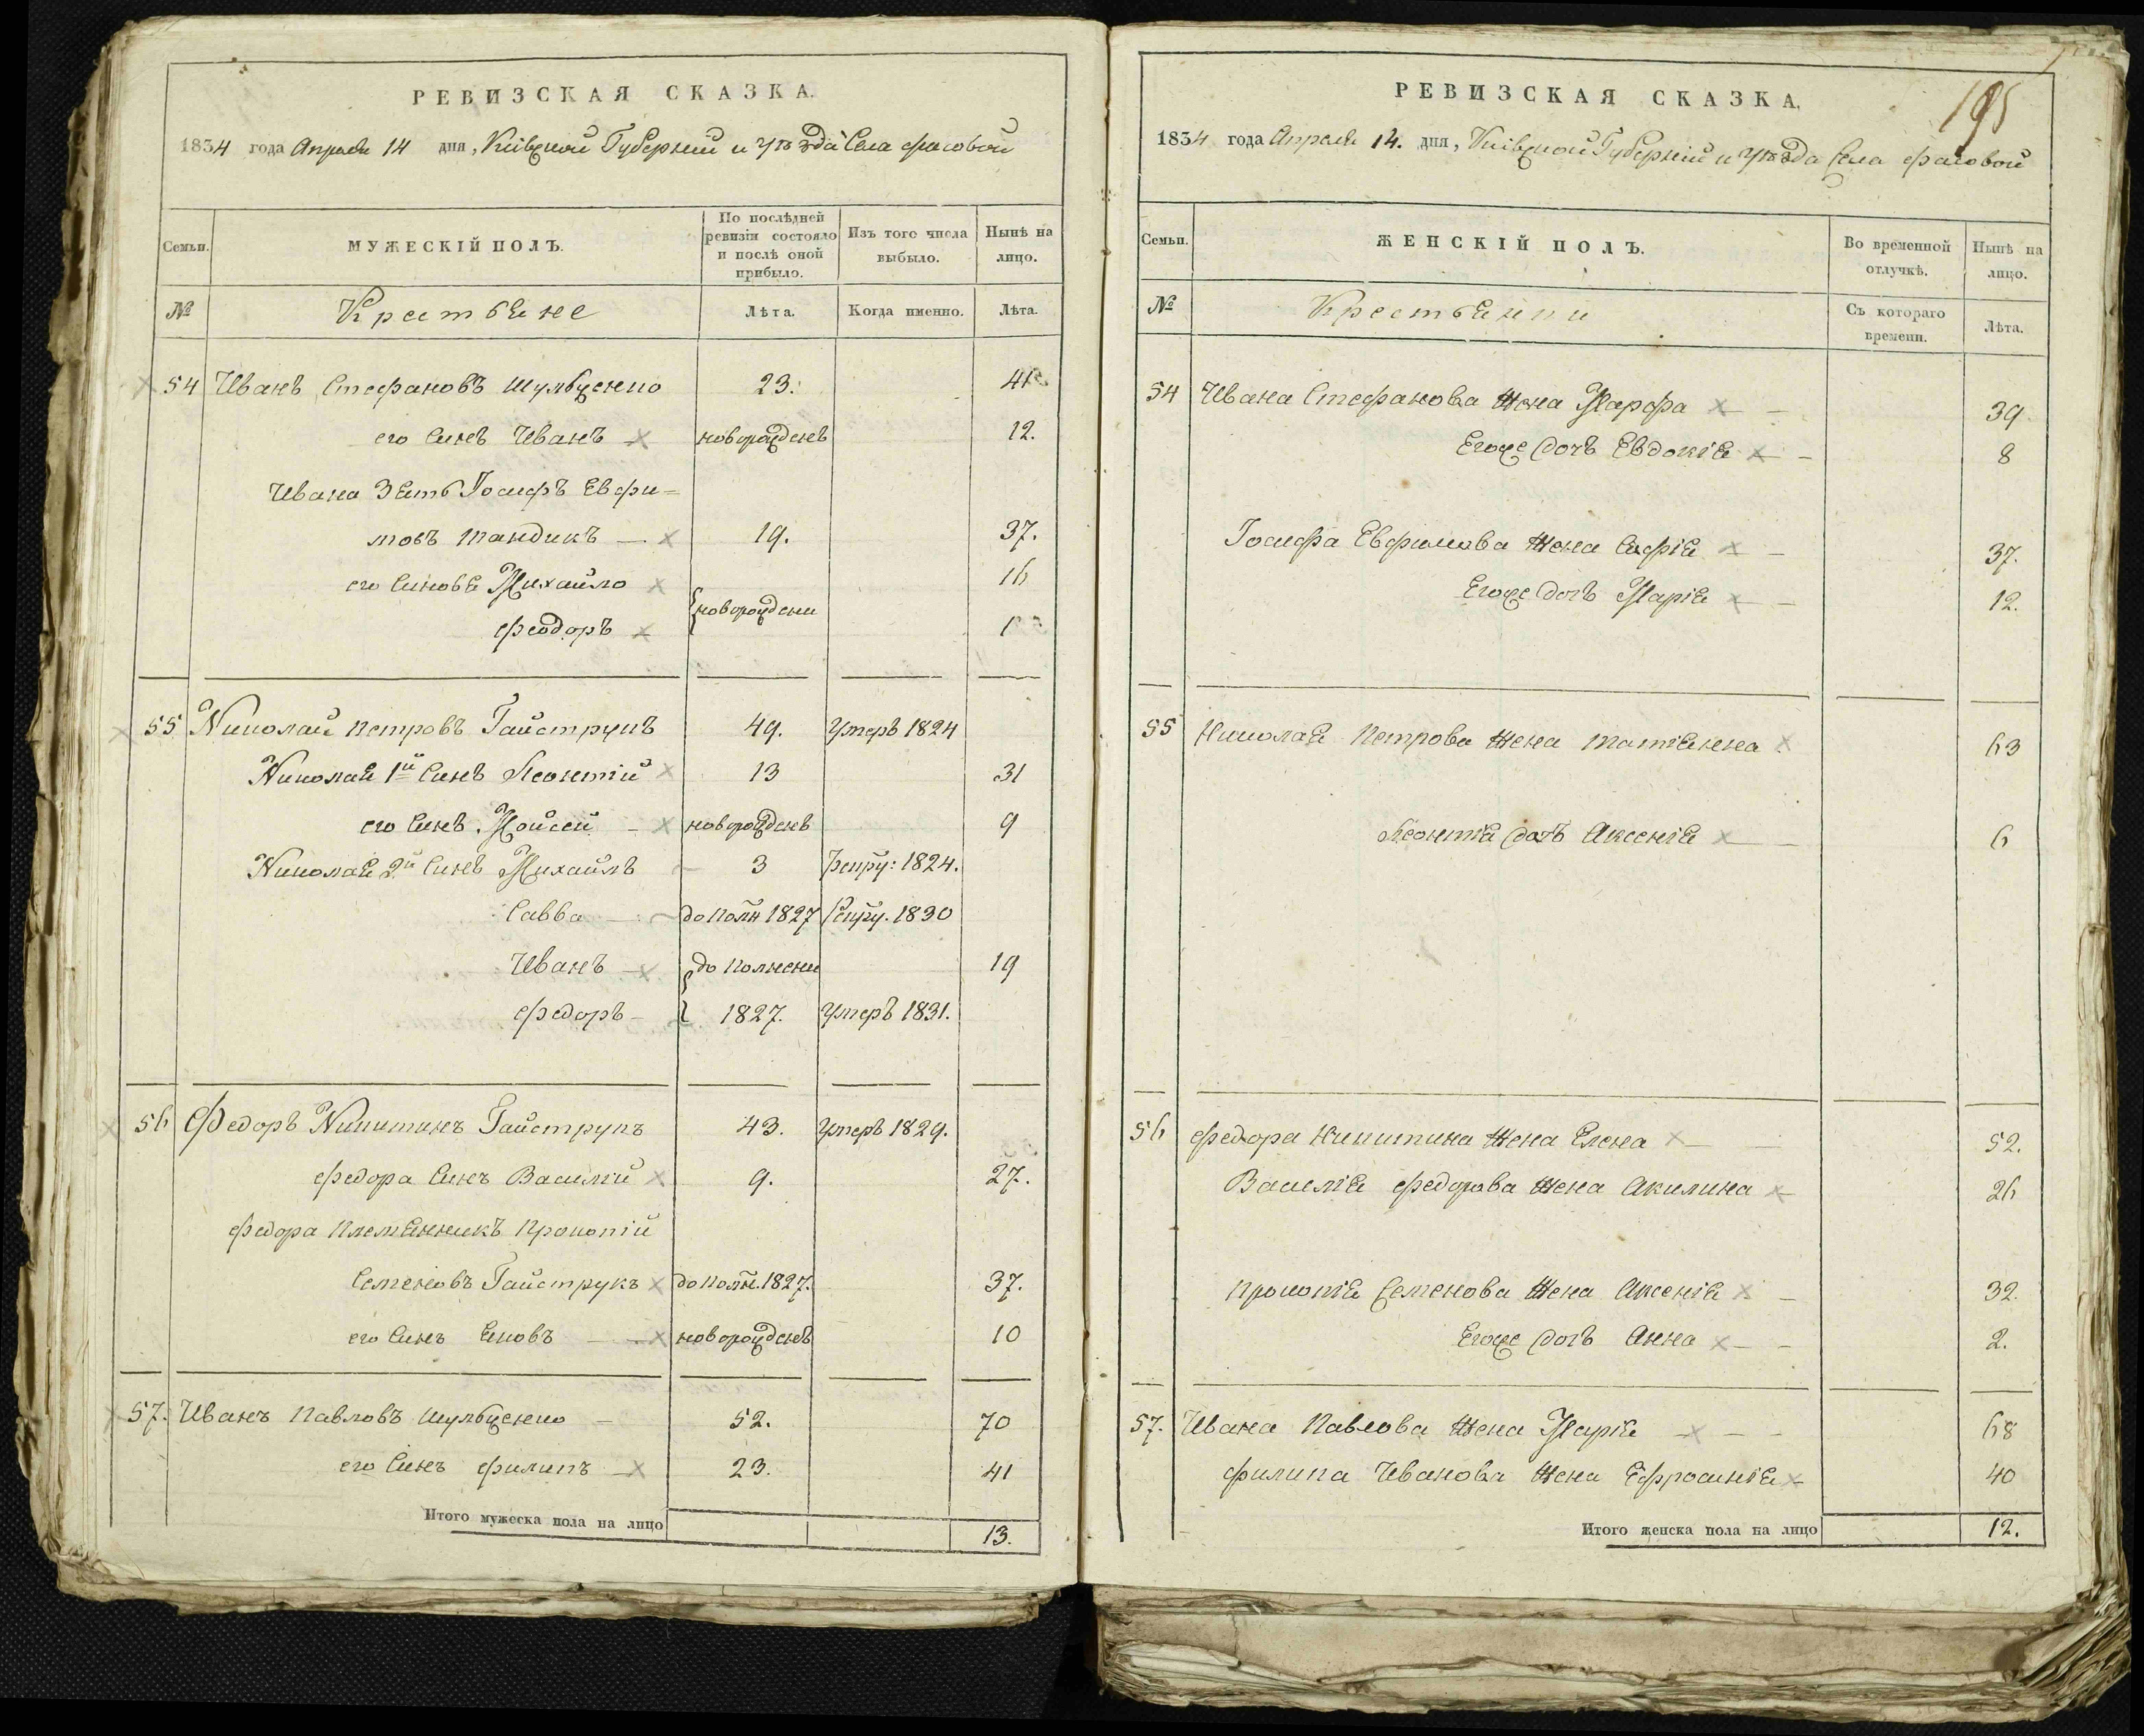 РЕВИЗСКАЯ СКАЗКА.
1834 года Апреля 14 дня, Кіевской Губерніи и уѣзда Села Фасовой
Семьи.
МУЖЕСКІЙ ПОЛЪ.
По послѣдней ревизіи состояло и послѣ оной прибыло.
Изъ того числа выбыло.
Нынѣ на лицо.
№
Крестьяне
Лѣта.
Когда именно.
Лѣта.
54 Иванъ Стефановъ Шульженко 23. 41
его Синъ Иванъ новорожденъ 12.
Ивана Зять Іосифъ Евфи=
мовъ Тандикъ 19. 37.
его Синовя Михайло 16
новорождени
Феодоръ 1
55 Николай Петровъ Гайструкъ 49. Умеръ 1824
Николая 1й Синъ Леонтій 13 31
его Синъ Мойсей новорожденъ 9
Николая 2й Синъ Михаилъ 3 Рекру: 1824.
Савва до полн 1827 Рекру. 1830
Иванъ до полнени 19
Федоръ 1827. Умеръ 1831.
56 Федоръ Никитинъ Гайструкъ 43. Умеръ 1829.
Федора Синъ Василій 9. 27.
Федора племянникъ Прокопій
Семеновъ Гайструкъ до полн. 1827. 37.
его Синъ Яковъ новорожденъ 10
57. Иванъ Павловъ Шульженко 52. 70
его Синъ Филипъ 23. 41
Итого мужеска пола на лицо 13.
195
РЕВИЗСКАЯ СКАЗКА.
1834 года Апреля 14. дня, Кіевской Губерніи и уѣзда Села Фасовой
Семьи.
ЖЕНСКІЙ ПОЛЪ.
Во временной отлучкѣ.
Нынѣ на лицо.
№
Крестьянки
Съ котораго времени.
Лѣта.
54 Ивана Стефанова Жена Марфа 39
Егоже дочъ Евдокія 8
Іосифа Евфимова Жена Софія 37.
Егоже дочъ Марія 12.
55 Николая Петрова Жена Татіянна 63
Леонтія дочъ Аксенія 6
56 Федора Никитина Жена Елена 52.
Василія Федорова Жена Акилина 26
Прокопія Семенова Жена Аксенія 32.
Егоже дочъ Анна 2.
57. Ивана Павлова Жена Марія 68
Филипа Иванова Жена Ефросинія 40
Итого женска пола на лицо 12.